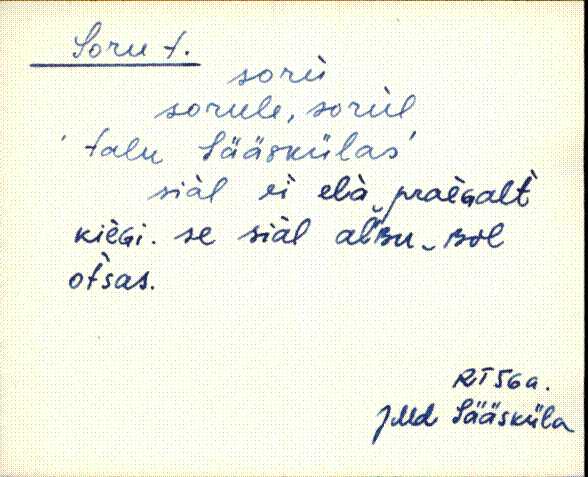 Soru t.
sorù
sorule, sorùl
'talu Sääskülas'
siàl ei elà praègalt
kiègi. se siàl alBu Bol
otsas.
RT 56 a.
JMd Sääsküla